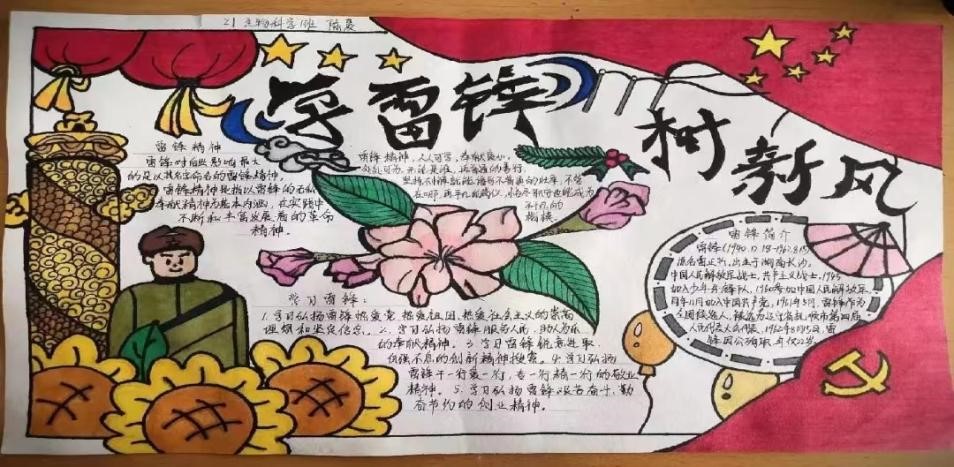 21生物科学1班 陈
学雷锋
树新风
雷锋精神
雷锋对后世影响最大
的是以其名字命名的雷锋精神。
雷锋精神是指以雷锋的无私
奉献精神为基本内涵，在实践中
不断和丰富发展着的革命
精神。
雷锋精神，人人可学，奉献爱心，
处处可为。
不平凡的
楷模。
雷锋简介
雷锋(1940.12.18-1962.8.15)
原名雷正兴，出生于湖南长沙，
中国人民解放军战士，共产主义战士，
加入少年先锋队，1960参加中国人民解放军
同年11月加入中国共产党。1961年5月，雷锋作为
人民代表大会代表。1962年8月15日，雷
锋因公殉职，年仅22岁。
学习雷锋：
1.学习弘扬雷锋热爱党，热爱祖国，热爱社会主义的崇高
理想和坚定信念。2.学习弘扬雷锋服务人民，助人为乐
的奉献精神。3.学习雷锋锐意进取
自强不息的创新精神 4.学习弘扬
雷锋干一行爱一行，专一行精一行的敬业
精神。5.学习弘扬雷锋艰苦奋斗，勤
俭节约的创业精神。